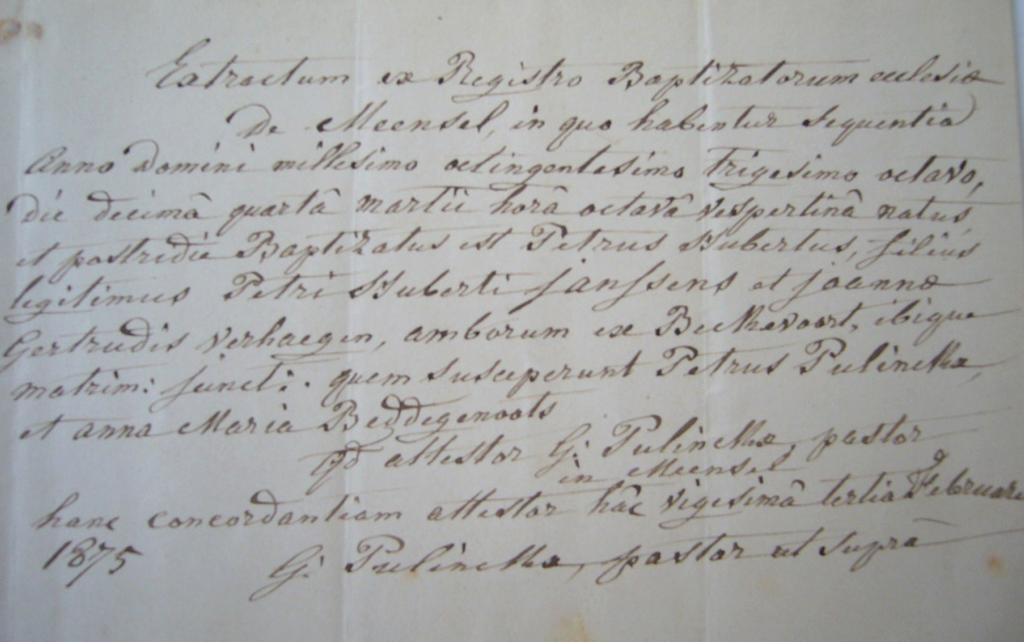 Extractum ex Registro Baptizatorum ecclesiæ
De Meensel, in quo habentur sequentia
Anno Domini millesimo octingentesimo trigesimo octavo,
die decimâ quartâ martii horâ octavâ vespertinâ natus
et postridie Baptizatus est Petrus Hubertus, filius
legitimus Petri Huberti Janssens et joannæ
Gertrudis Verhaegen, amborum ex Beckevoort, ibique
matrim: junct: . quem susceperunt Petrus Pulinckx,
et anna Maria Beddegenoots
qd attestor G: Pulinckx, pastor
in Meensel
hanc concordantiam attestor hâc vigesimâ tertia Februarii
1875
G: Pulinckx, pastor ut suprà